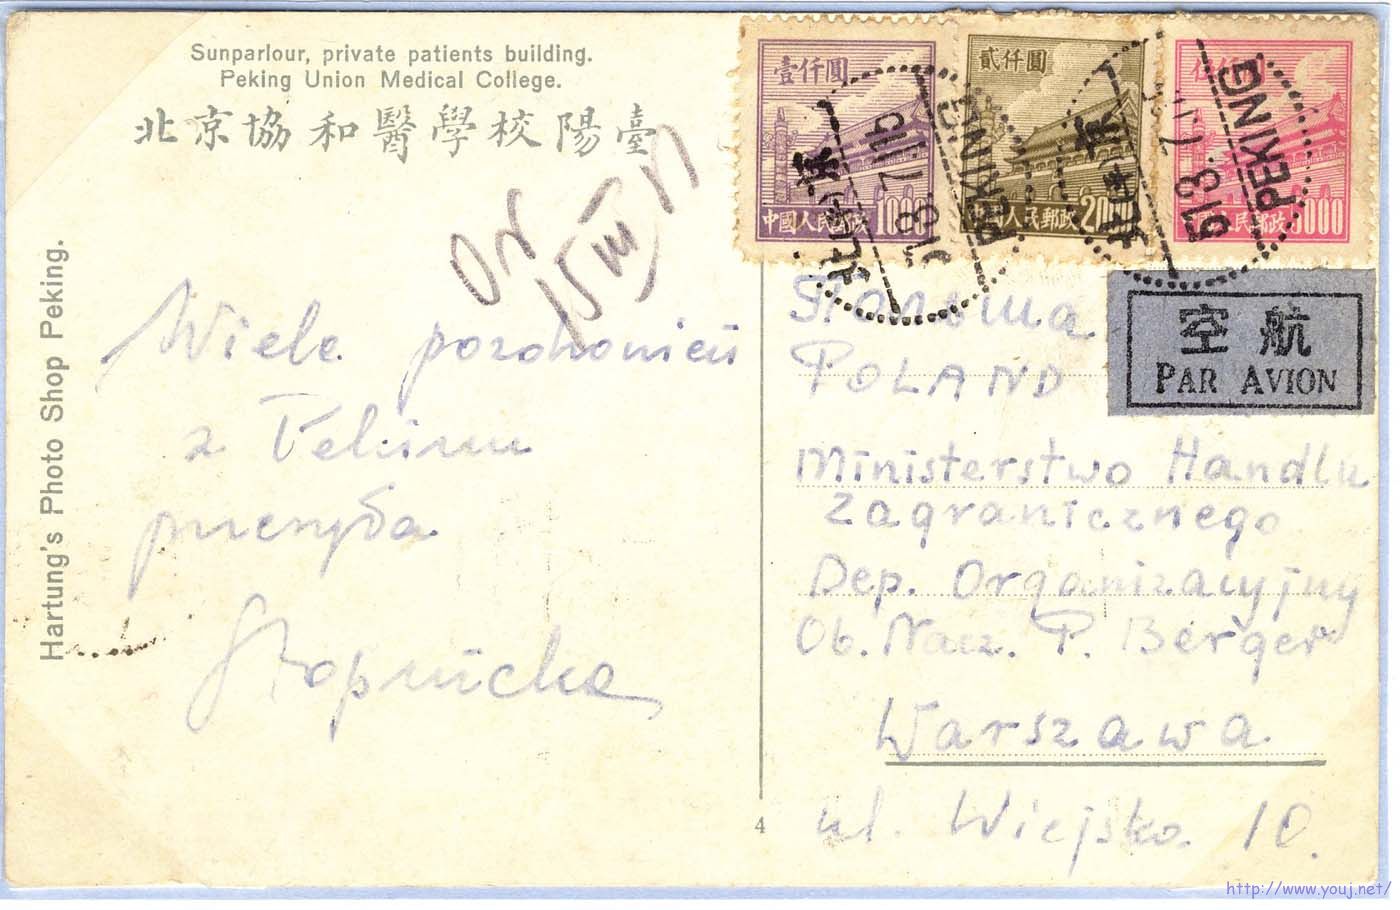 Sunparlour, private patients building.
Peking Union Medical College.
北京協和醫學校陽臺
Hartung's Photo Shop Peking.
15 III
Wiele pozdrowień
z Pekinu
przesyła
壹仟圓
中國人民郵政 1000
貳仟圓
國人民郵政
人民郵政
北京
PEKING
北京
51.3.7.
PEKING
空航
PAR AVION
Польша
POLAND
Ministerstwo Handlu
Zagranicznego
Dep. Organizacyjny
Ob. Nacz. P. Berger
Warszawa
ul. Wiejska 10.
4
http://www.youj.net/